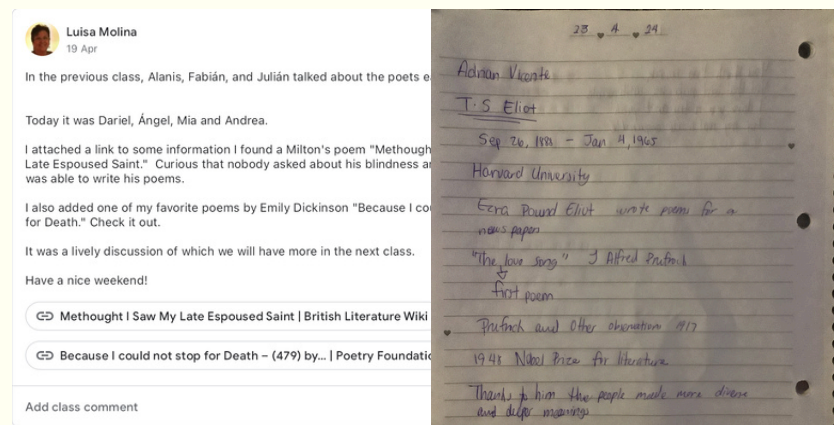 Luisa Molina
19 Apr
In the previous class, Alanis, Fabián, and Julián talked about the poets e
Today it was Dariel, Ángel, Mia and Andrea.
I attached a link to some information I found a Milton's poem "Methough
Late Espoused Saint." Curious that nobody asked about his blindness a
was able to write his poems.
I also added one of my favorite poems by Emily Dickinson "Because I co
for Death." Check it out.
It was a lively discussion of which we will have more in the next class.
Have a nice weekend!
Methought I Saw My Late Espoused Saint | British Literature Wiki
Because I could not stop for Death – (479) by... | Poetry Foundatio
Add class comment
23 4 24
Adrian Vicente
T.S Eliot
Sep 26, 1888 - Jan 4, 1965
Harvard University
Ezra Pound Eliot wrote poems for a
news paper
"The love song" J Alfred Prufrock
first poem
Prufrock and Other observations 1917
1948 Nobel Prize for literature
Thanks to him the people made more diverse
and deeper meanings